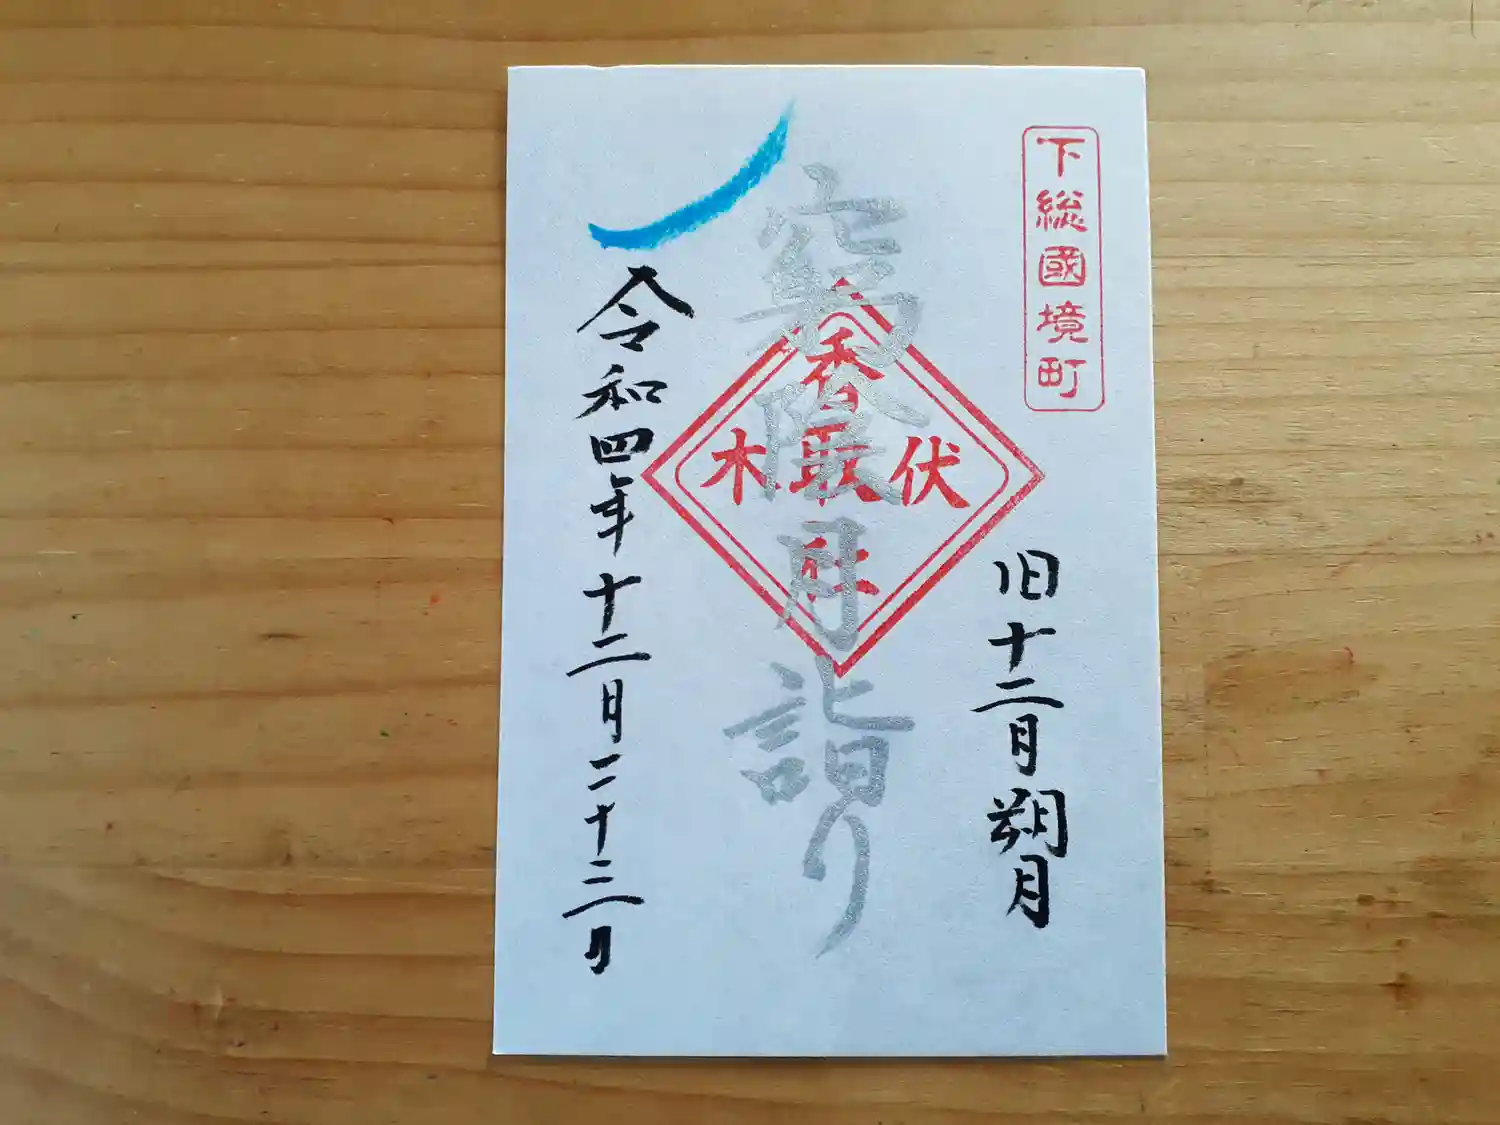 下総國境町
旧十二月朔月
窮陰月詣り
香取
伏木
社
令和四年十二月二十三日